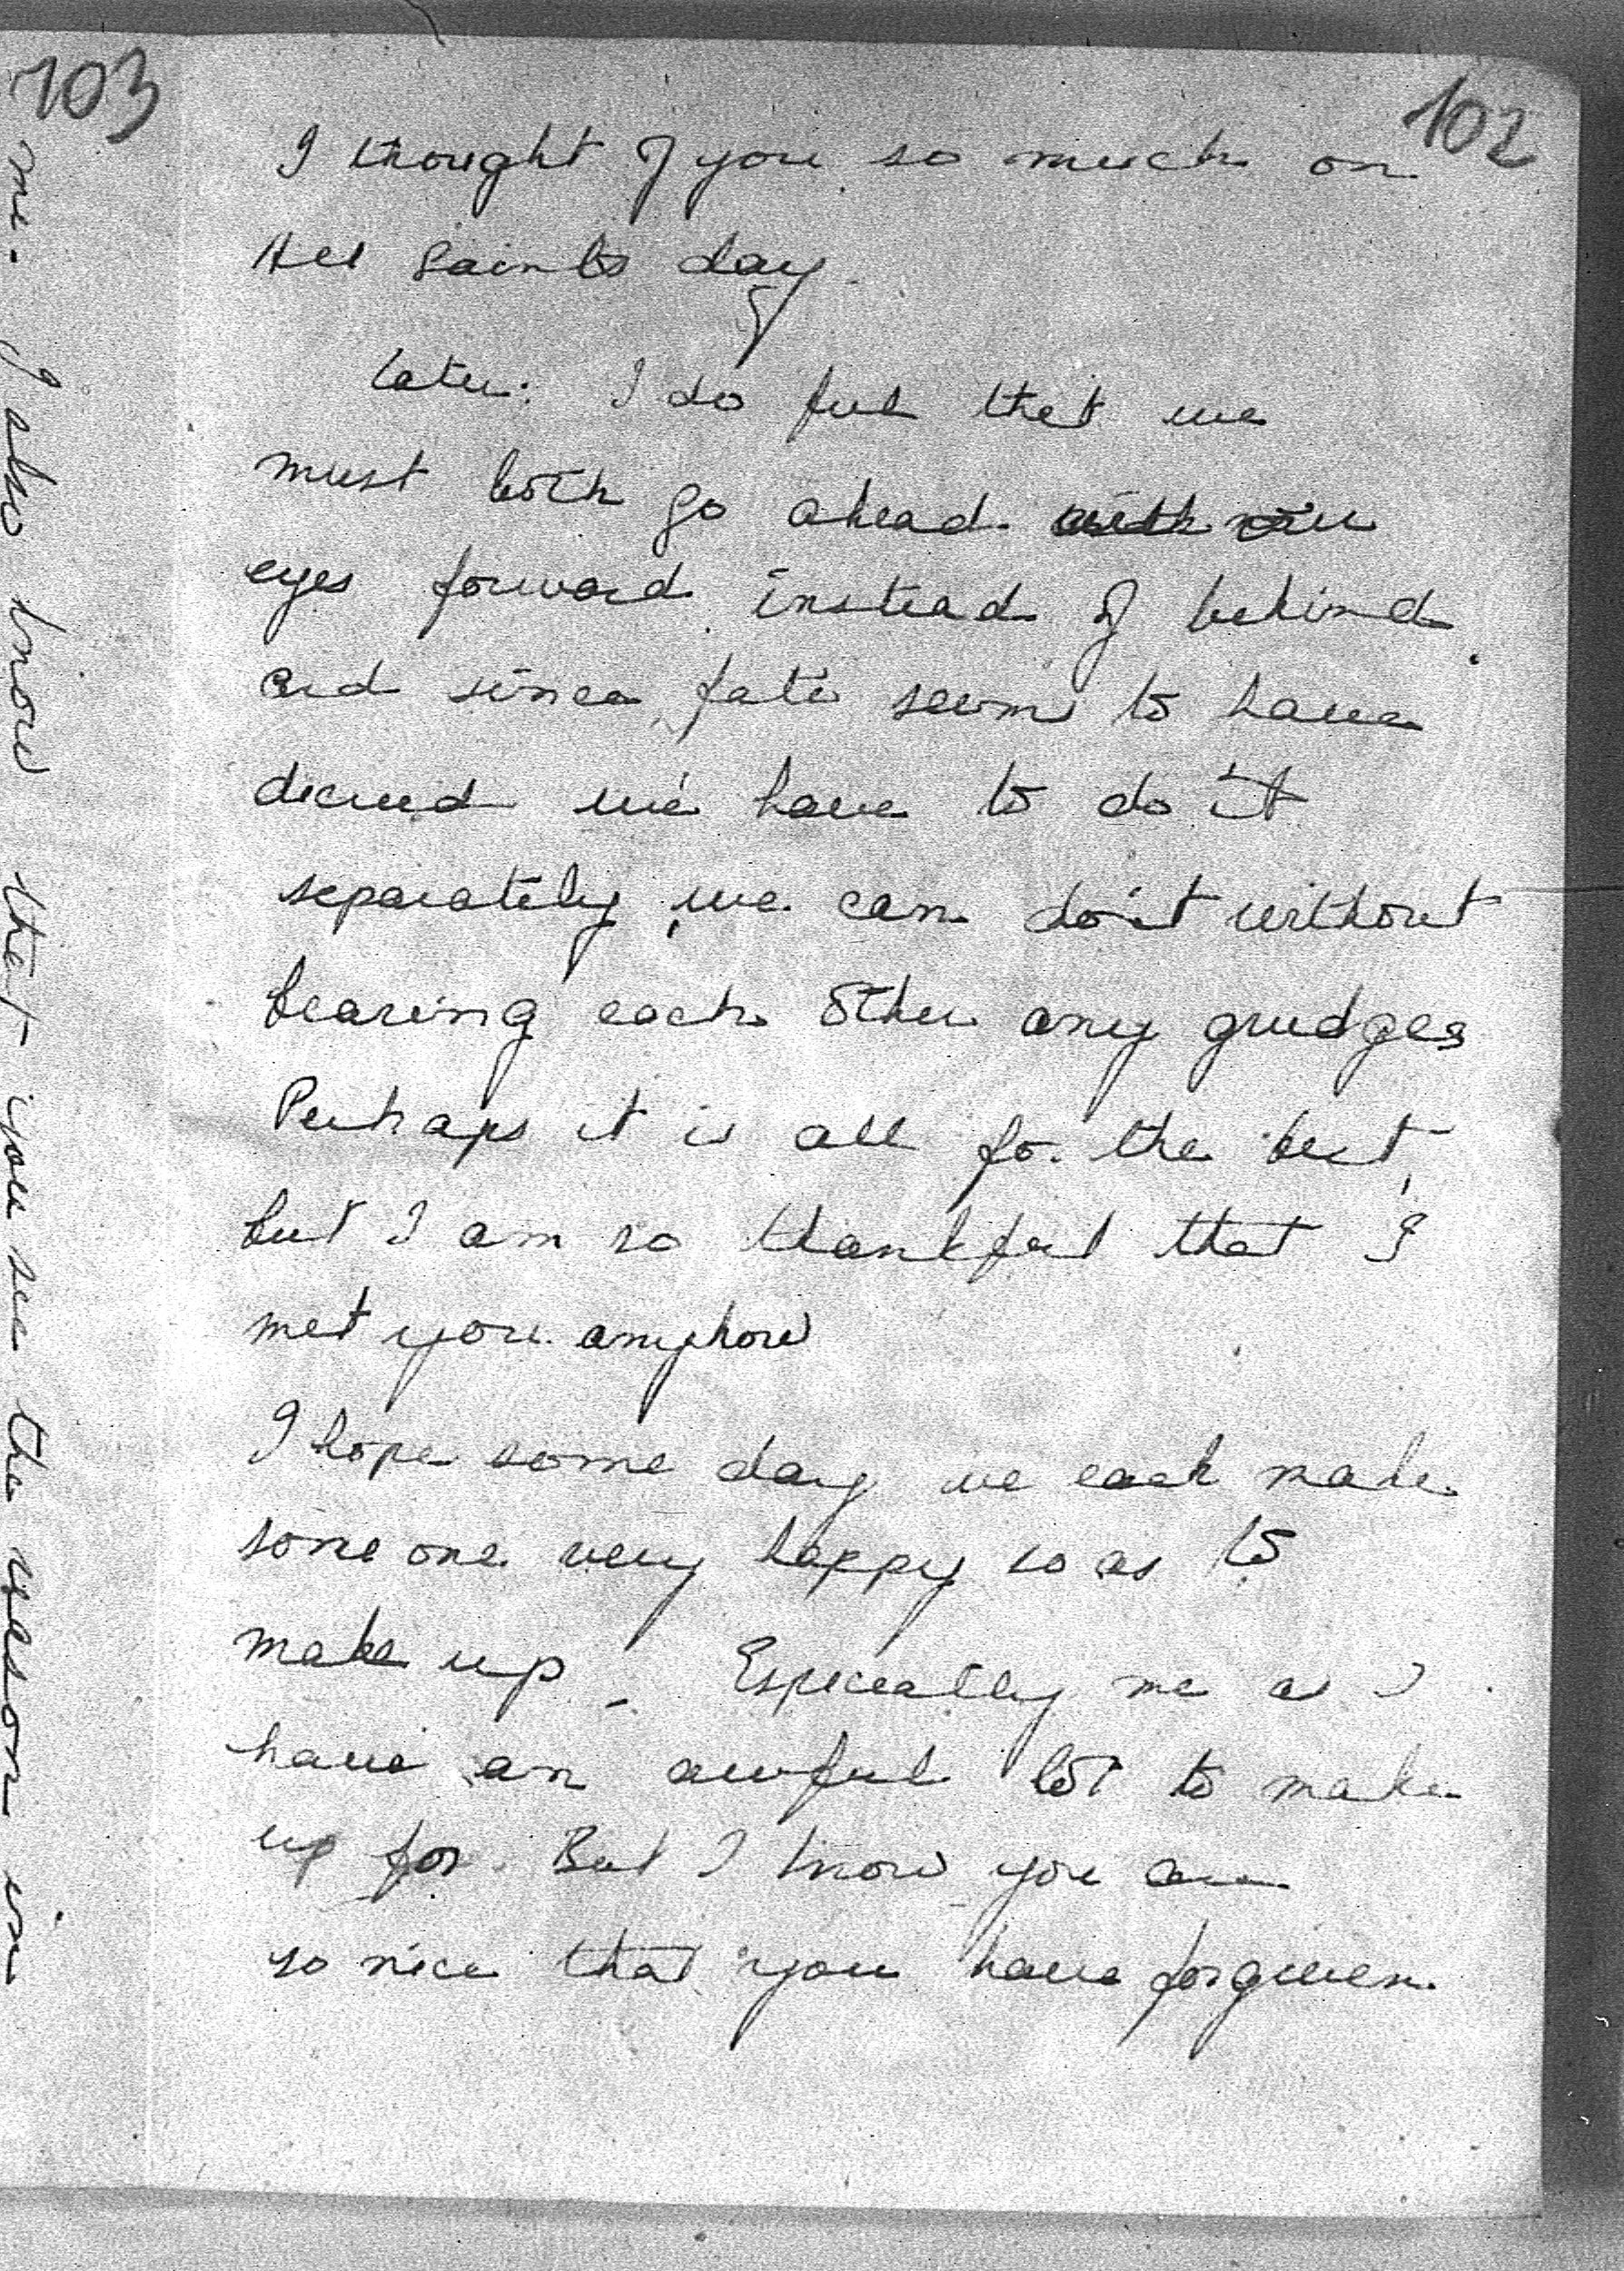 102
I thought of you so much on
All Saints day
Later: I do feel that we
must both go ahead with our
eyes forward instead of behind
and since fate seems to have
decreed we have to do it
separately, we can do it without
bearing each other any grudges
Perhaps it is all for the best,
but I am so thankful that I
met you anyhow
I hope some day we each make
some one very happy so as to
make up - Especially me as I
have an awful lot to make
up for. But I know you are
so nice that you have forgiven
103
me. I also know that you see the reason in